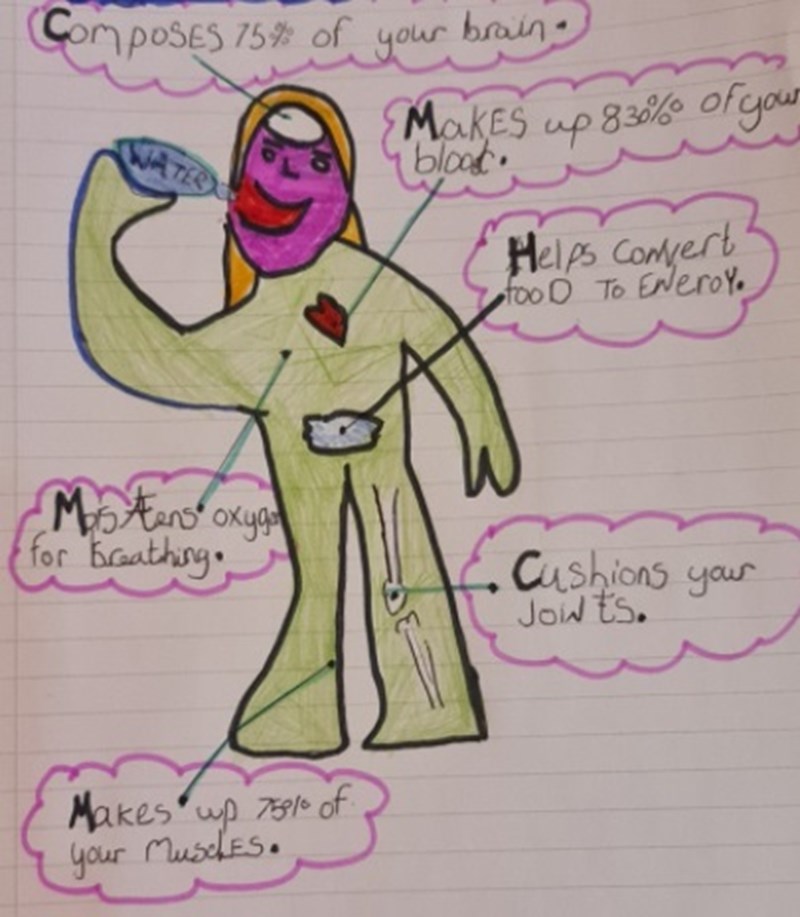 Composes 75% of your brain.
Makes up 830% of your
blood.
WATER
Helps Convert
fooD To Energy.
Moistens oxygen
for breathing.
Cushions your
Joints.
Makes up 75% of
your Muscles.